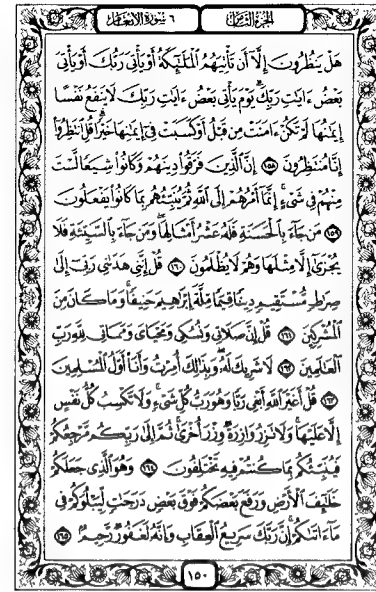 الجزء الثامن
٦ سورة الأنعام
هَلْ يَنظُرُونَ إِلَّا أَن تَأْتِيَهُمُ الْمَلَٰئِكَةُ أَوْ يَأْتِىَ رَبُّكَ أَوْ يَأْتِىَ
بَعْضُ ءَايَٰتِ رَبِّكَ يَوْمَ يَأْتِى بَعْضُ ءَايَٰتِ رَبِّكَ لَا يَنفَعُ نَفْسًا
إِيمَٰنُهَا لَمْ تَكُنْ ءَامَنَتْ مِن قَبْلُ أَوْ كَسَبَتْ فِىٓ إِيمَٰنِهَا خَيْرًا قُلِ انتَظِرُوٓا
إِنَّا مُنتَظِرُونَ ١٥٨ إِنَّ الَّذِينَ فَرَّقُوا دِينَهُمْ وَكَانُوا شِيَعًا لَّسْتَ
مِنْهُمْ فِى شَىْءٍ إِنَّمَآ أَمْرُهُمْ إِلَى اللَّهِ ثُمَّ يُنَبِّئُهُم بِمَا كَانُوا يَفْعَلُونَ
١٥٩ مَن جَآءَ بِالْحَسَنَةِ فَلَهُ عَشْرُ أَمْثَالِهَا وَمَن جَآءَ بِالسَّيِّئَةِ فَلَا
يُجْزَىٰٓ إِلَّا مِثْلَهَا وَهُمْ لَا يُظْلَمُونَ ١٦٠ قُلْ إِنَّنِى هَدَىٰنِى رَبِّىٓ إِلَىٰ
صِرَٰطٍ مُّسْتَقِيمٍ دِينًا قِيَمًا مِّلَّةَ إِبْرَٰهِيمَ حَنِيفًا وَمَا كَانَ مِنَ
الْمُشْرِكِينَ ١٦١ قُلْ إِنَّ صَلَاتِى وَنُسُكِى وَمَحْيَاىَ وَمَمَاتِى لِلَّهِ رَبِّ
الْعَٰلَمِينَ ١٦٢ لَا شَرِيكَ لَهُ وَبِذَٰلِكَ أُمِرْتُ وَأَنَا أَوَّلُ الْمُسْلِمِينَ
١٦٣ قُلْ أَغَيْرَ اللَّهِ أَبْغِى رَبًّا وَهُوَ رَبُّ كُلِّ شَىْءٍ وَلَا تَكْسِبُ كُلُّ نَفْسٍ
إِلَّا عَلَيْهَا وَلَا تَزِرُ وَازِرَةٌ وِزْرَ أُخْرَىٰ ثُمَّ إِلَىٰ رَبِّكُم مَّرْجِعُكُمْ
فَيُنَبِّئُكُم بِمَا كُنتُمْ فِيهِ تَخْتَلِفُونَ ١٦٤ وَهُوَ الَّذِى جَعَلَكُمْ
خَلَٰٓئِفَ الْأَرْضِ وَرَفَعَ بَعْضَكُمْ فَوْقَ بَعْضٍ دَرَجَٰتٍ لِّيَبْلُوَكُمْ فِى
مَآ ءَاتَىٰكُمْ إِنَّ رَبَّكَ سَرِيعُ الْعِقَابِ وَإِنَّهُ لَغَفُورٌ رَّحِيمٌ ١٦٥
١٥٠